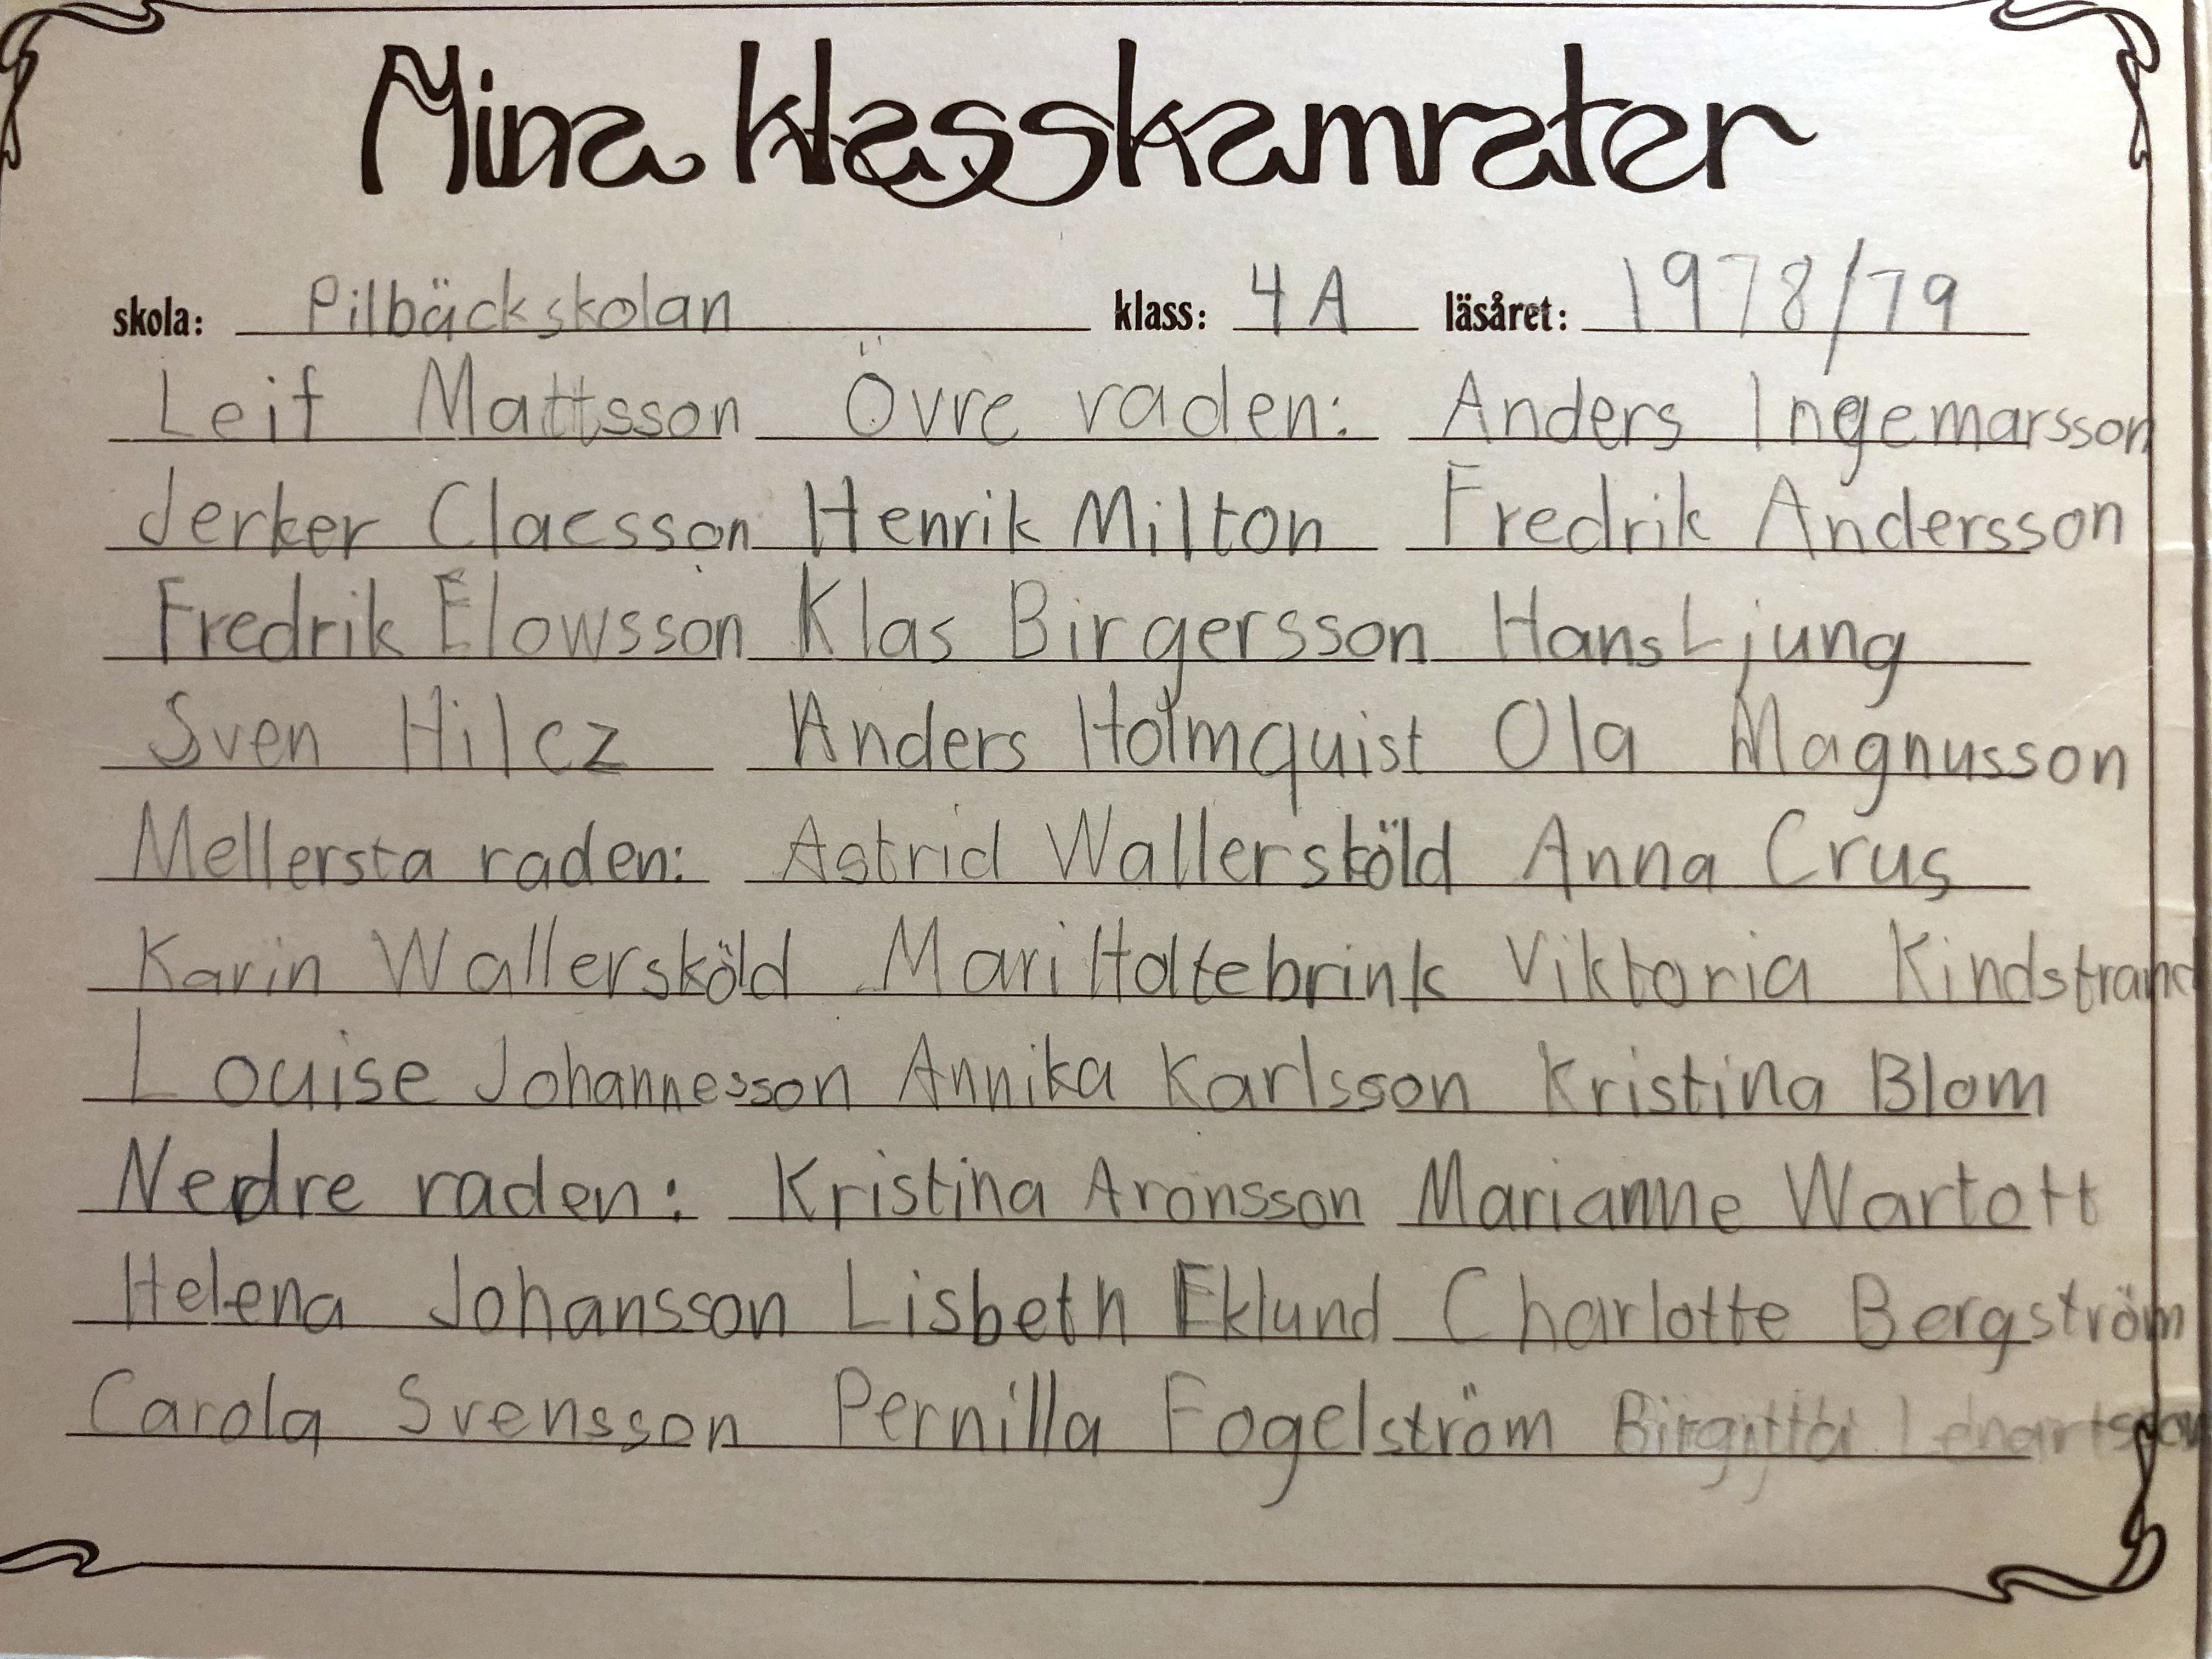 Mina klasskamrater
skola: Pilbäckskolan klass: 4A läsåret: 1978/79
Leif Mattsson Övre raden: Anders Ingemarsson
Jerker Claesson Henrik Milton Fredrik Andersson
Fredrik Elowsson Klas Birgersson Hans Ljung
Sven Hilcz Anders Holmquist Ola Magnusson
Mellersta raden: Astrid Wallersköld Anna Crus
Karin Wallersköld Mari Holtebrink Viktoria Kindstrand
Louise Johannesson Annika Karlsson Kristina Blom
Nedre raden: Kristina Aronsson Marianne Wartott
Helena Johansson Lisbeth Eklund Charlotte Bergström
Carola Svensson Pernilla Fogelström Birgitta Lenartsson